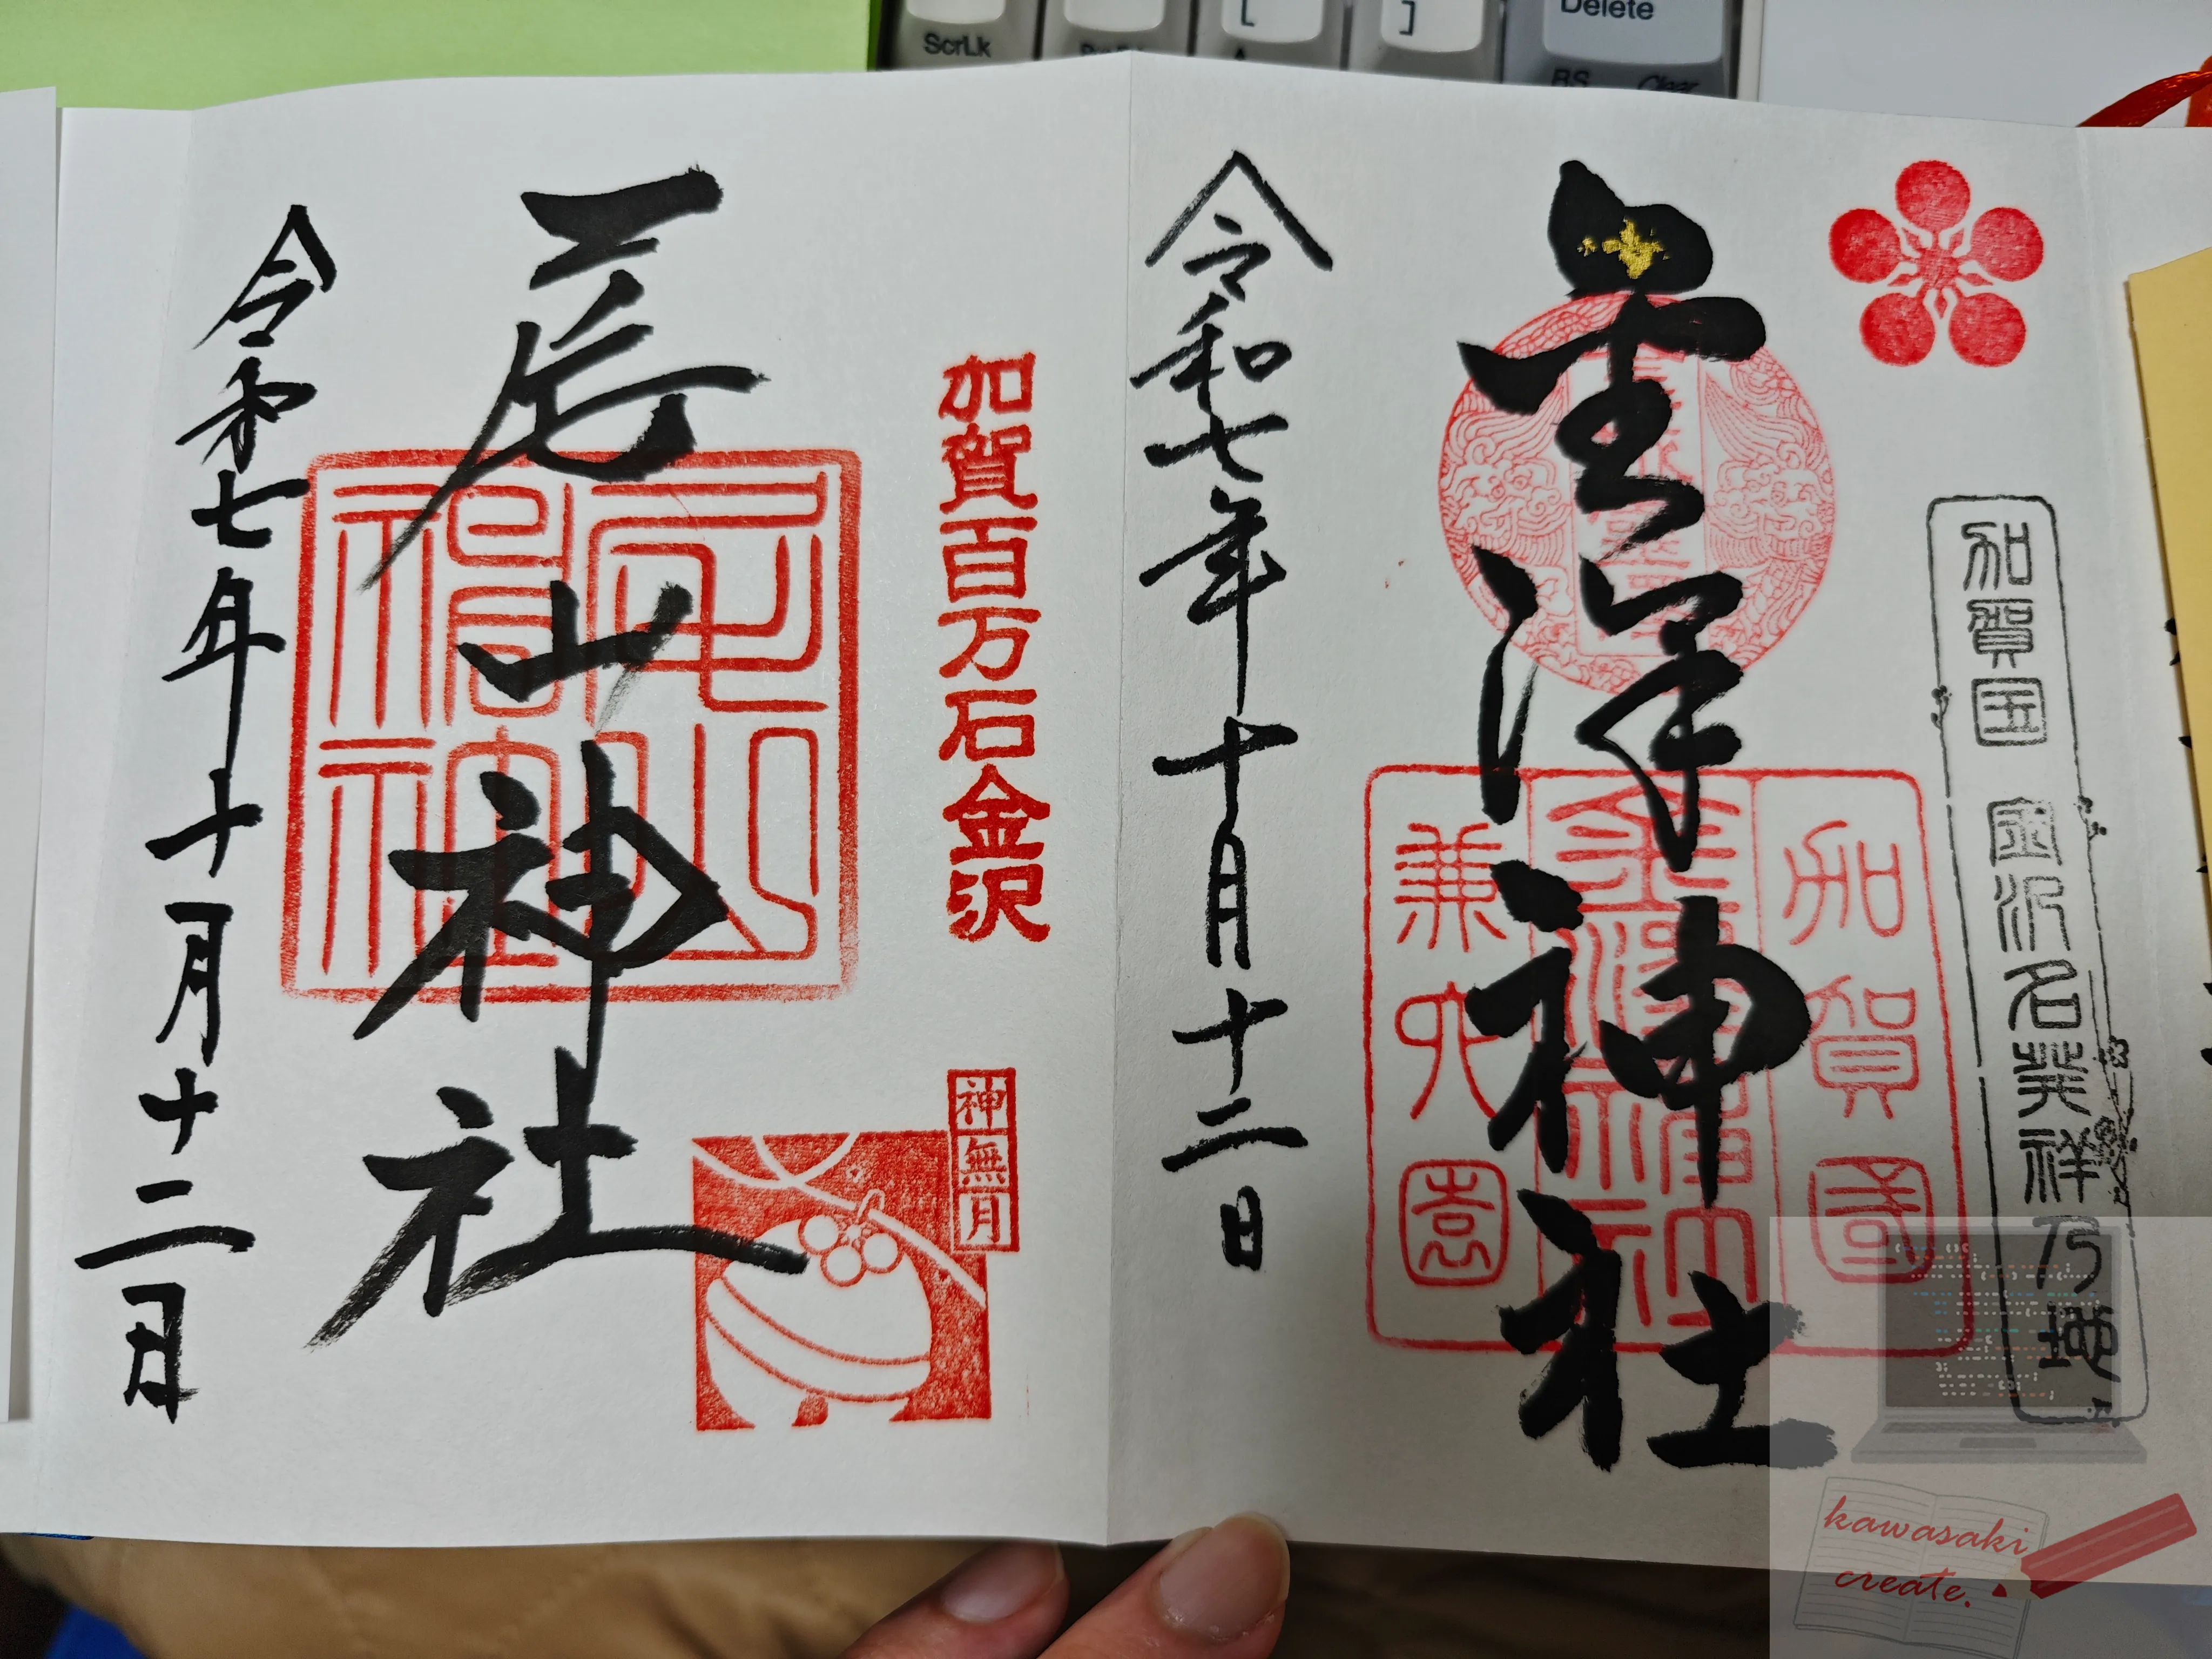 ScrLk
[
]
Delete
BS
Clear
加賀国 金沢名発祥乃地
金澤神社
加賀國
金澤神社
兼六園
令和七年十月十二日
加賀百万石金沢
神無月
尾山神社
尾山神社
令和七年十月十二日
kawasaki
create.